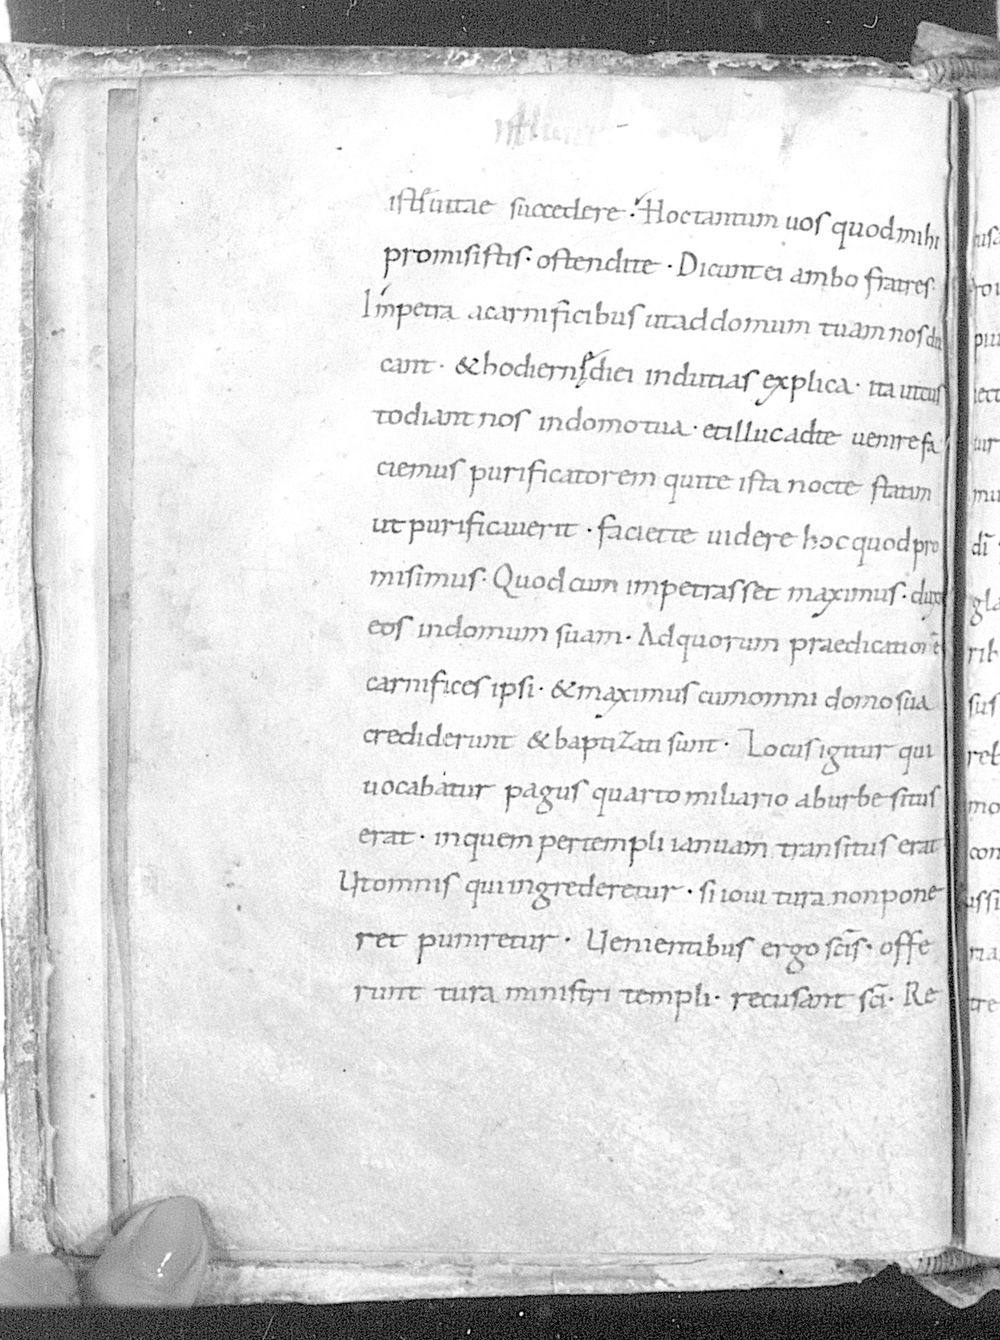 uitae succedere · Hoc tantum uos quod mihi
promisistis · ostendite · Dicunt ei ambo fratres
Impetra a carnificibus ut ad domum tuam nos du
cant · & hodierni diei indutias explica · ita ut cus
todiant nos in domo tua · et illuc ad te uenire fa
ciemus purificatorem qui te ista nocte statim
ut purificauerit · faciet te uidere hoc quod pro
misimus · Quod cum impetrasset maximus · duxit
eos in domum suam · Ad quorum praedicationē
carnifices ipsi · & maximus cum omni domo sua
crediderunt & baptizati sunt · Locus igitur qui
uocabatur pagus quarto miliario ab urbe situs
erat · in quem per templi ianuam transitus erat
Ut omnis qui ingrederetur · si ioui tura non pone
ret puniretur · Uenientibus ergo scīs · offe
runt tura ministri templi · recusant scī · Re